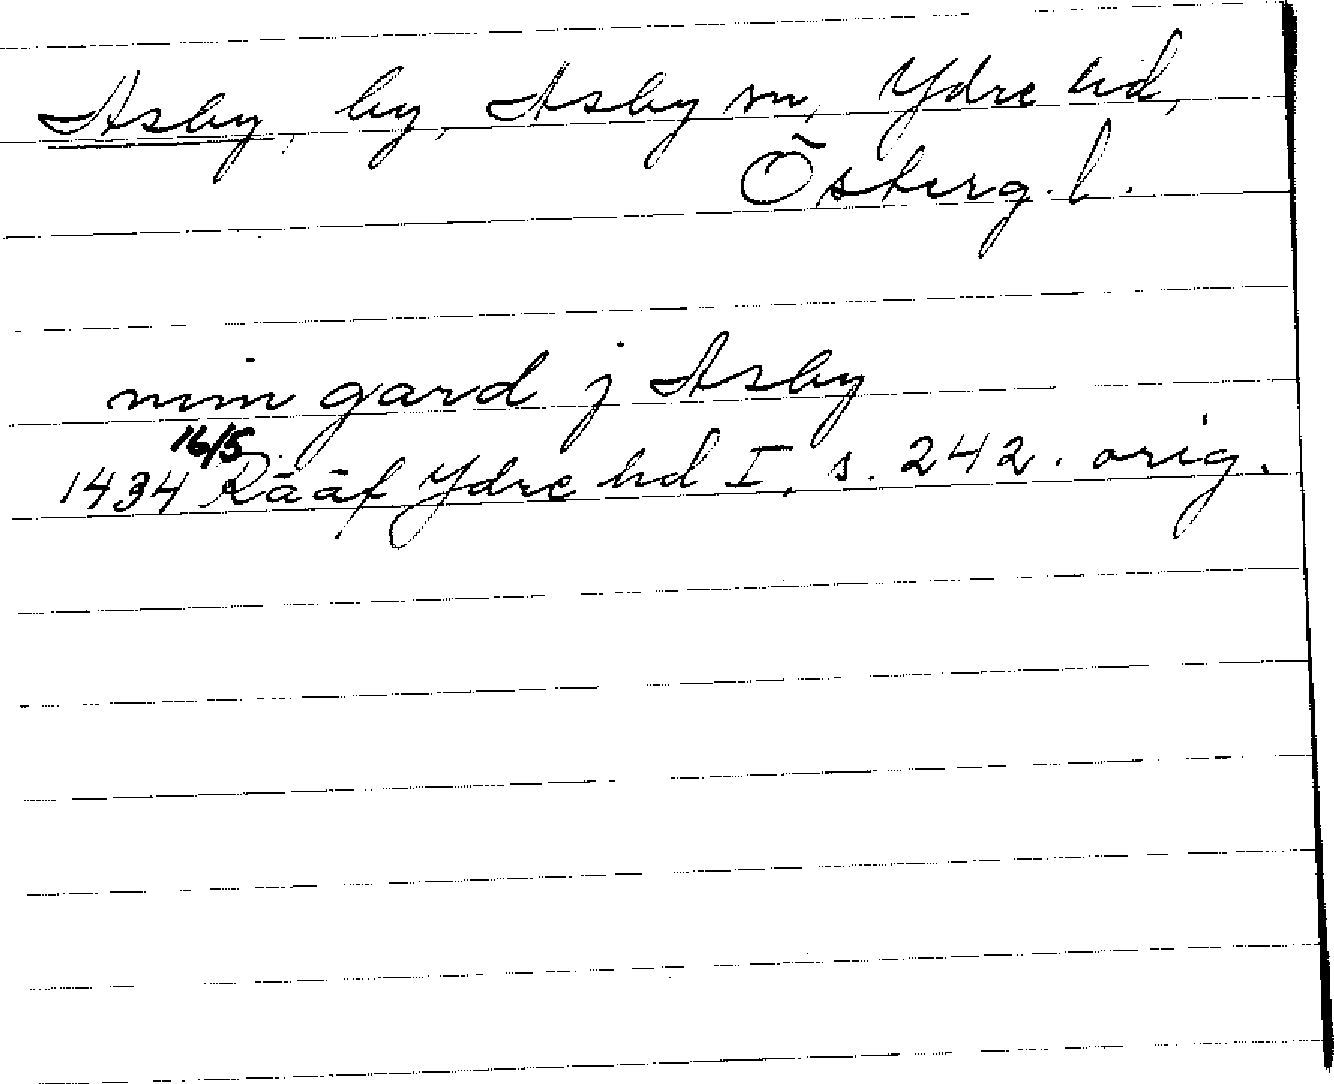 Asby, by, Asby sn, Ydre hd,
Österg. l.
min gard j Asby
16/5
1434 Rääf Ydre hd I, s. 242. orig.